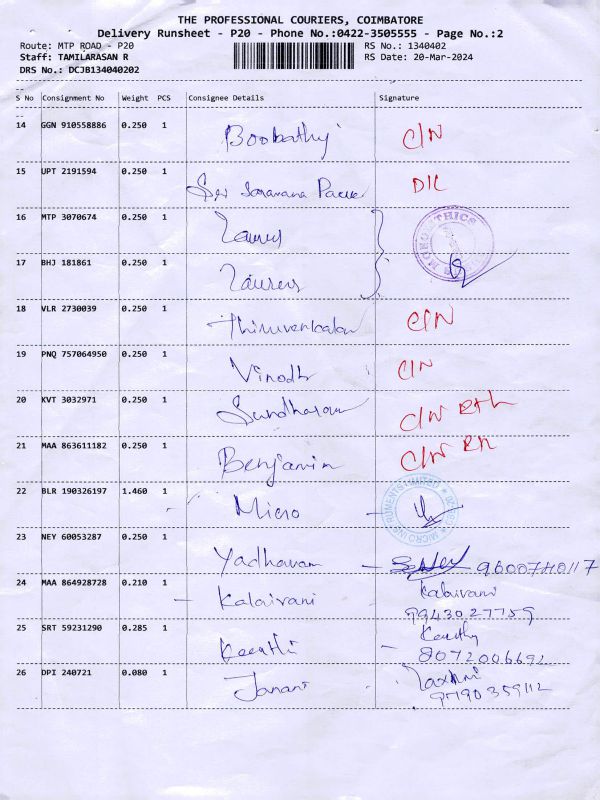 THE PROFESSIONAL COURIERS, COIMBATORE
Delivery Runsheet - P20 - Phone No.:0422-3505555 - Page No.:2
Route: MTP ROAD - P20
RS No.: 1340402
Staff: TAMILARASAN R
RS Date: 20-Mar-2024
DRS No.: DCJB134040202
S No Consignment No Weight PCS Consignee Details Signature
14 GGN 910558886 0.250 1 Boobathy C/N
15 UPT 2191594 0.250 1 Sri Saravana D/L
16 MTP 3070674 0.250 1
17 BHJ 181861 0.250 1
18 VLR 2730039 0.250 1 C/N
19 PNQ 757064950 0.250 1 Vinodh C/N
20 KVT 3032971 0.250 1 Sundharam C/N
21 MAA 863611182 0.250 1 Benjamin C/N
22 BLR 190326197 1.460 1 Micro
MICRO INSTRUMENTS LIMITED
23 NEY 60053287 0.250 1 Yadhavam
24 MAA 864928728 0.210 1 Kalaivani Kalaivani
9943027759
25 SRT 59231290 0.285 1 Keerthi Keerthy
8072006692
26 DPI 240721 0.080 1 Janani Laxhmi
9790359112